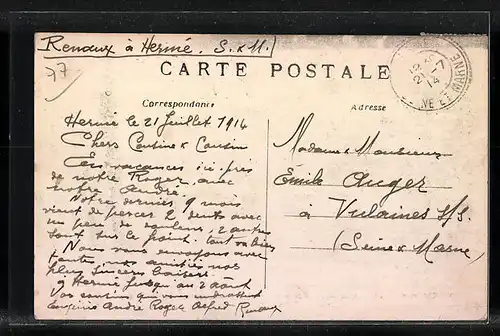 Renaux à Hermé. S. & M.
77
CARTE POSTALE
Correspondance
Adresse
12
21-7
14
NE ET MARNE
Hermé le 21 Juillet 1914
Chers Cousine & Cousin
En vacances ici près
de notre Roger, avec
notre André.
Notre dernier 9 mois
vient de percer 2 dents avec
un peu de douleurs, 2 autres
sont sur le point.
Nous vous envoyons avec
toutes nos amitiés nos
plus sincères baisers.
Hermé jusqu'au 2 août
Vos cousins qui vous
André Roger Alfred Renaux
Madame & Monsieur
Émile Auger
à Vulaines s/s.
(Seine & Marne)